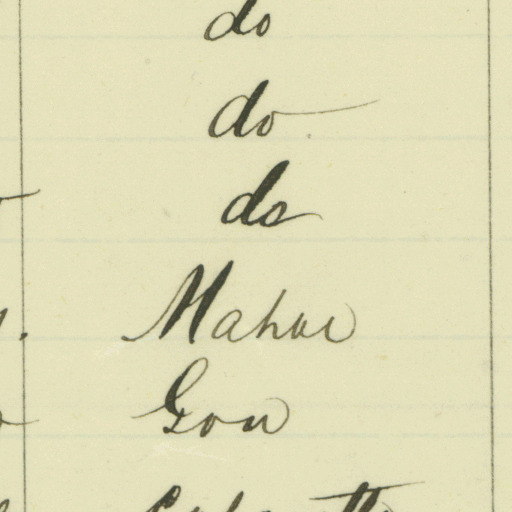 do
do
do
Mahar
Gou